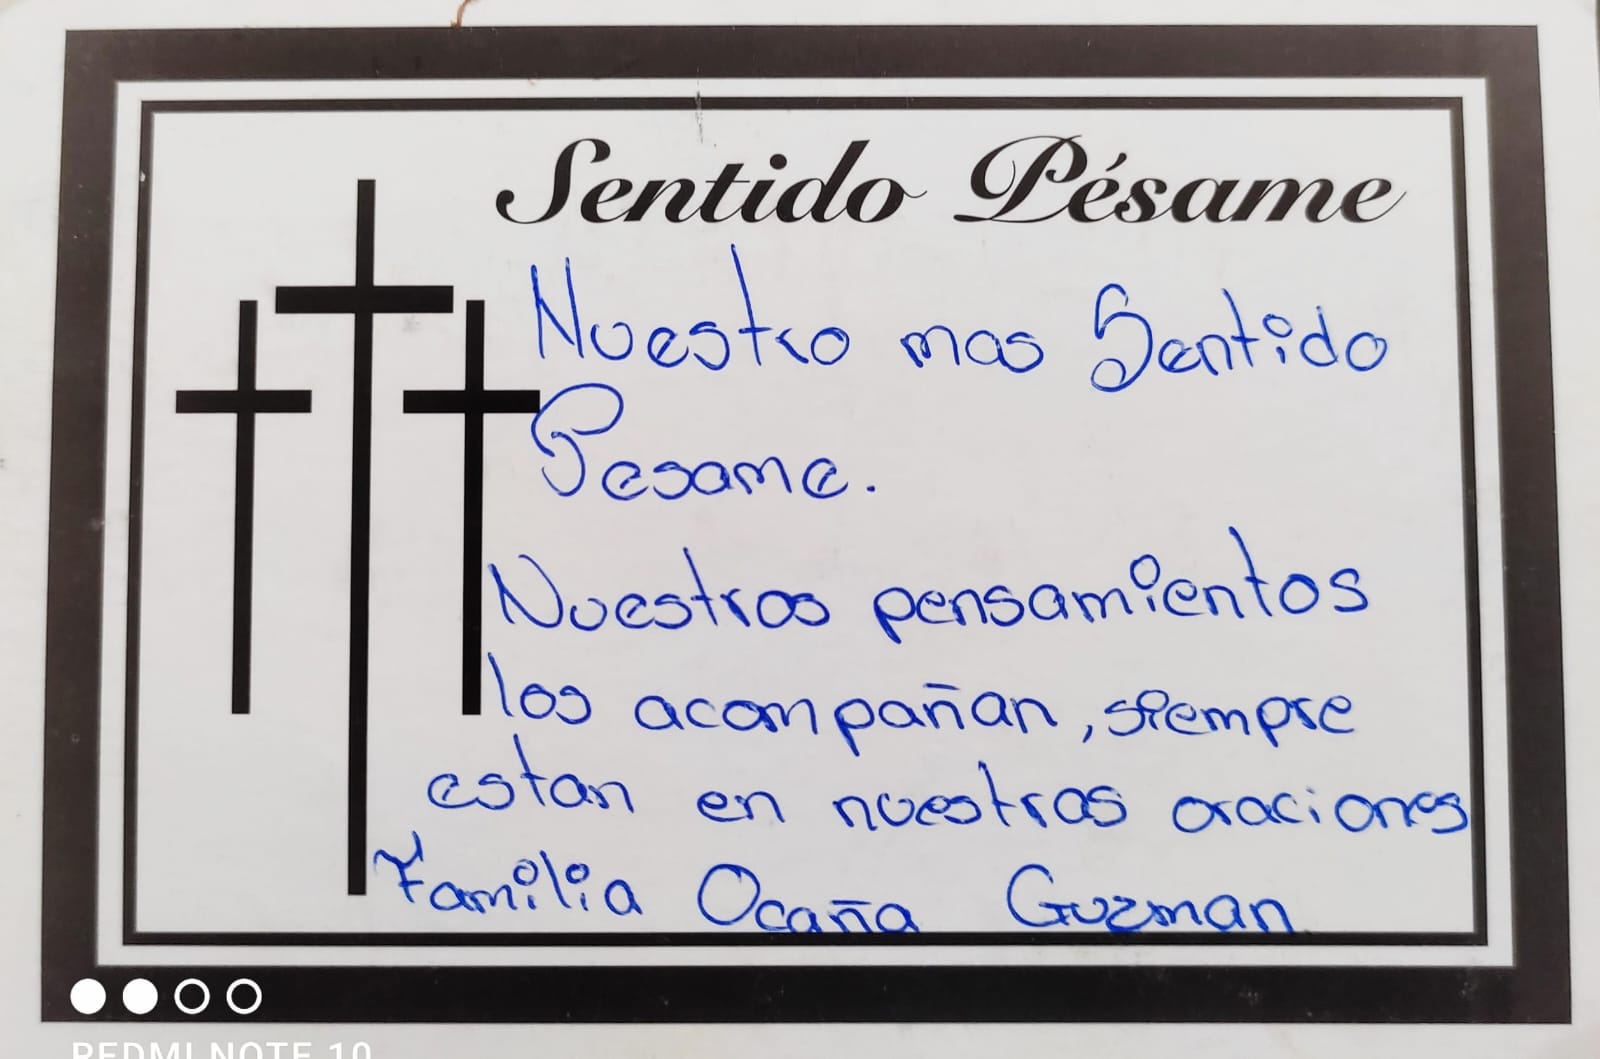 Sentido Pésame
Nuestro mas Sentido
Pesame.
Nuestros pensamientos
los acompañan, siempre
estan en nuestras oraciones
Familia Ocaña Guzman
REDMI NOTE 10